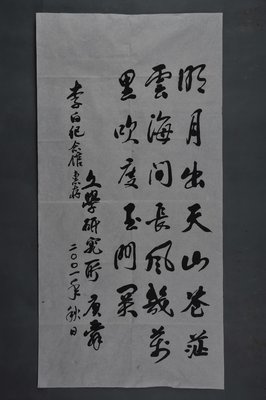 明月出天山苍茫
雲海间長风幾萬
里吹度玉门关
李白纪念馆惠存
文學研究所
二〇〇一年秋日